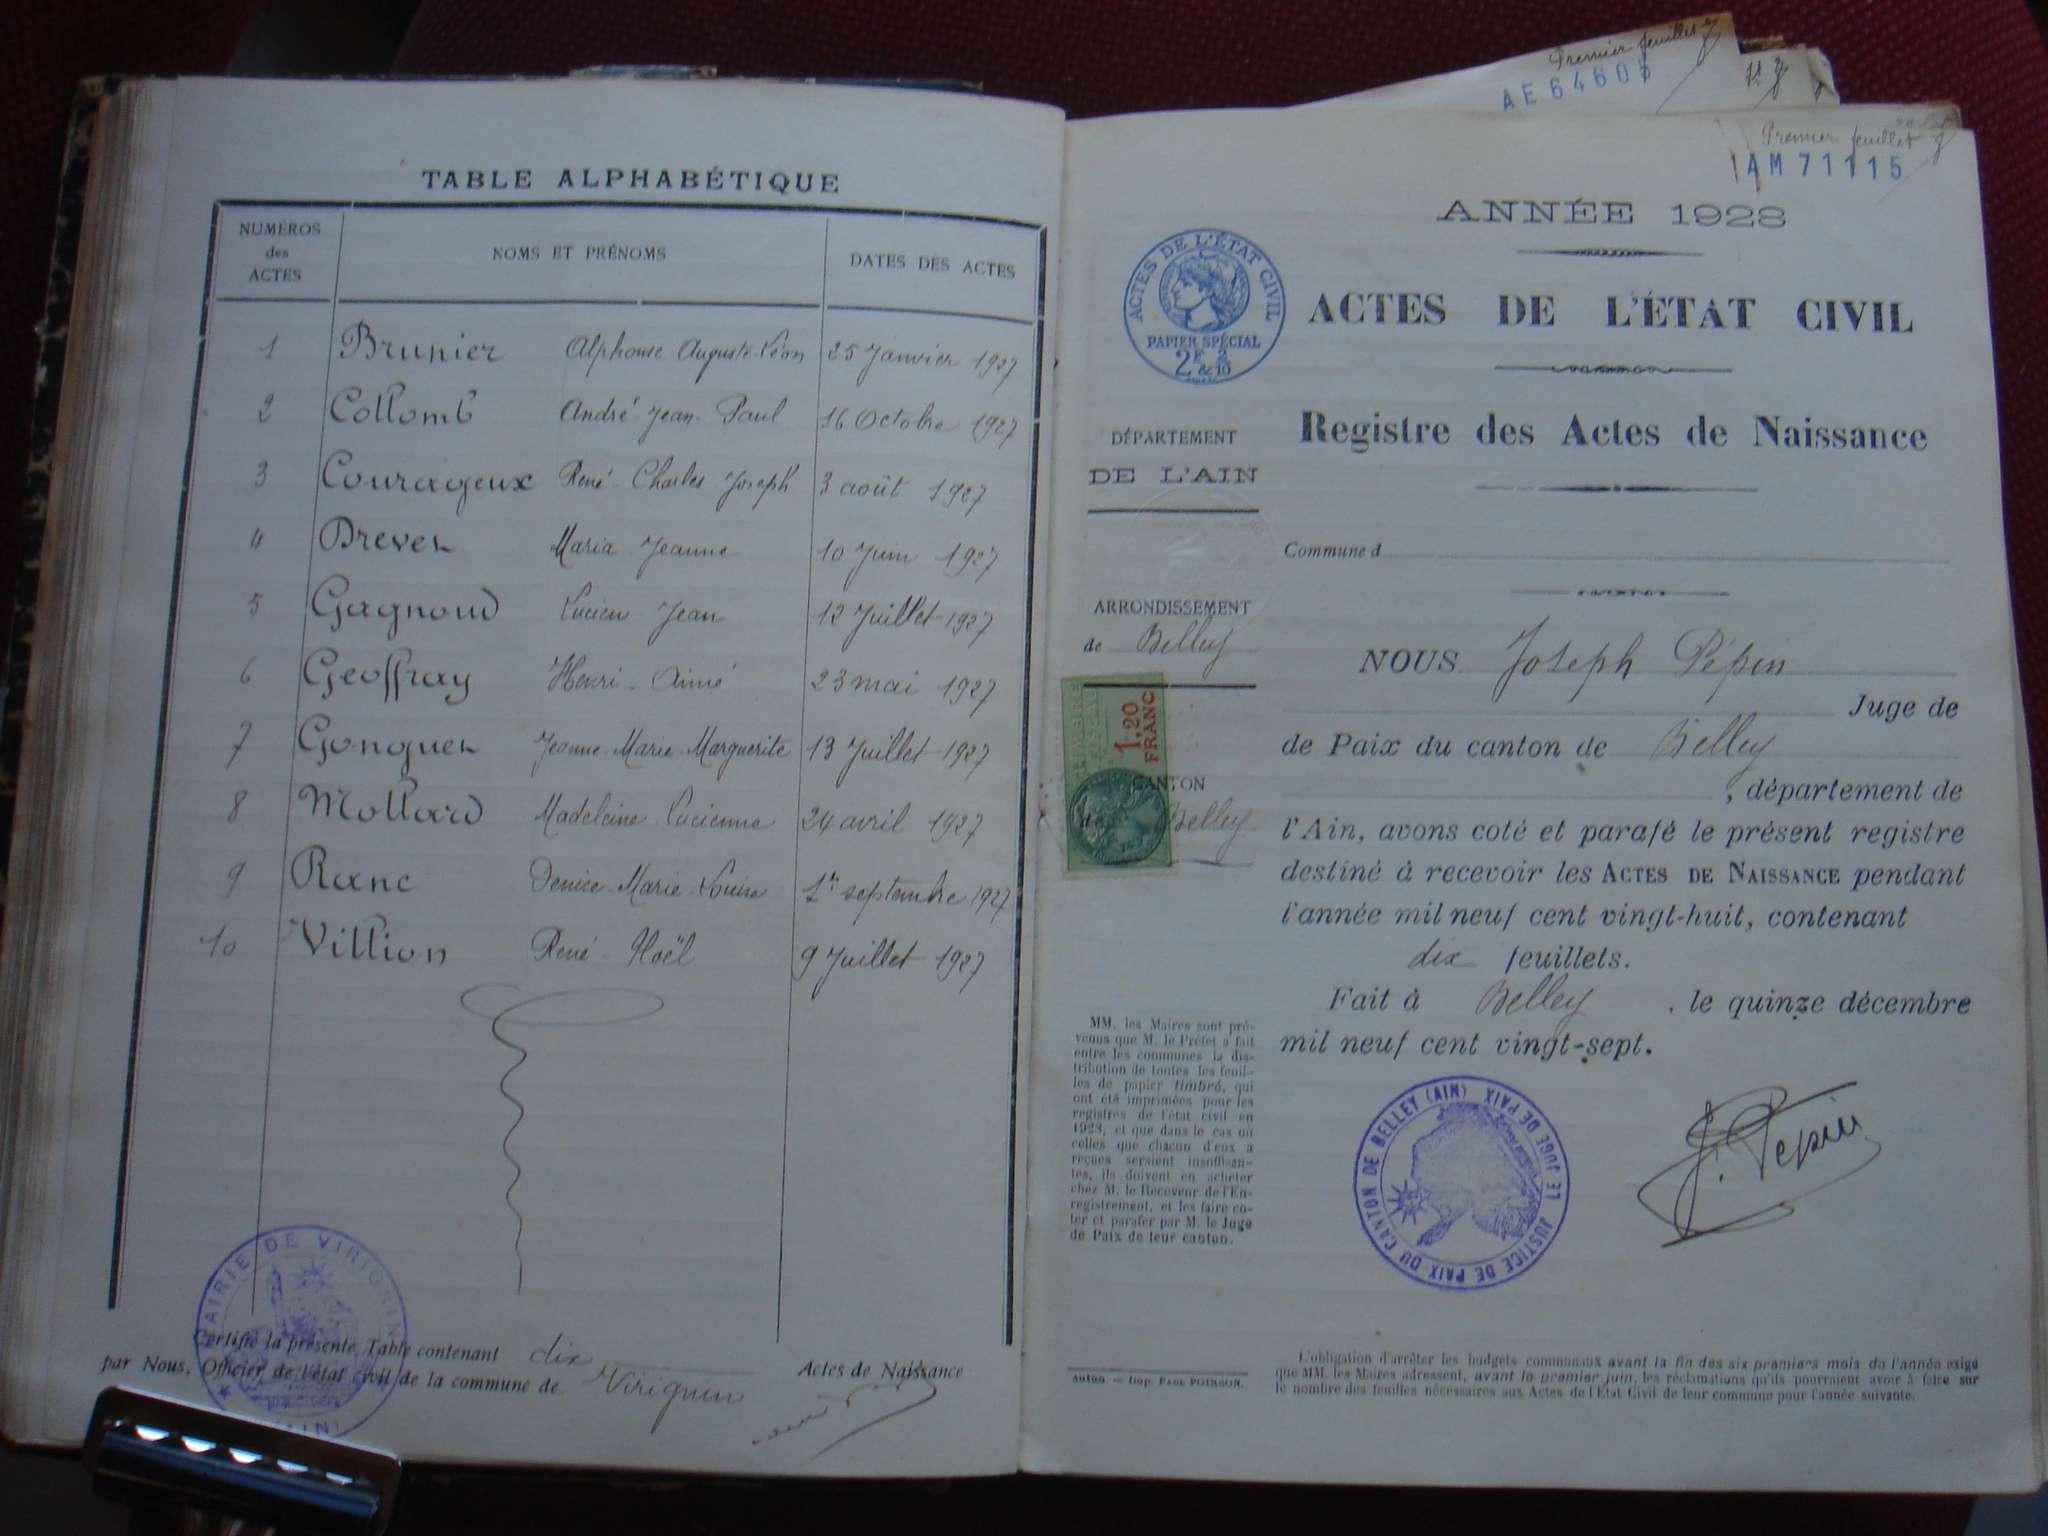 TABLE ALPHABÉTIQUE
NUMÉROS des ACTES NOMS ET PRÉNOMS DATES DES ACTES
1 Brunier Alphonse Auguste Léon 25 Janvier 1927
2 Collomb André Jean Paul 16 Octobre 1927
3 Courageux René Charles Joseph 3 août 1927
4 Drevet Maria Jeanne 10 Juin 1927
5 Gagnoud Lucien Jean 12 Juillet 1927
6 Geoffray Henri Aimé 23 mai 1927
7 Gonguet Jeanne Marie Marguerite 13 Juillet 1927
8 Mollard Madeleine Lucienne 24 avril 1927
9 Ranc Denise Marie Louise 1er septembre 1927
10 Villion René Noël 9 Juillet 1927
MAIRIE DE VIRIGNIN
(AIN)
Certifié la présente Table contenant dix Actes de Naissance
par Nous, Officier de l'état civil de la commune de Virignin
Premier feuillet
AE 6460
Premier feuillet
AM 71115
ANNÉE 1928
ACTES DE L'ÉTAT CIVIL
PAPIER SPÉCIAL
2F & 2/10
ACTES DE L'ÉTAT CIVIL
Registre des Actes de Naissance
DÉPARTEMENT
DE L'AIN
Commune d
ARRONDISSEMENT
de Belley
1,20
FRANC
CANTON
de Belley
NOUS Joseph Pépin
Juge de
de Paix du canton de Belley
, département de
l'Ain, avons coté et parafé le présent registre
destiné à recevoir les ACTES DE NAISSANCE pendant
l'année mil neuf cent vingt-huit, contenant
dix feuillets.
Fait à Belley, le quinze décembre
mil neuf cent vingt-sept.
MM. les Maires sont pré-
venus que M. le Préfet a fait
entre les communes la dis-
tribution de toutes les feuil-
les de papier timbré, qui
ont été imprimées pour les
registres de l'état civil en
1928, et que dans le cas où
celles que chacun d'eux a
reçues seraient insuffisan-
tes, ils doivent en acheter
chez M. le Receveur de l'En-
registrement, et les faire co-
ter et parafer par M. le Juge
de Paix de leur canton.
LE JUGE DE PAIX
JUSTICE DE PAIX DU CANTON DE BELLEY (AIN)
J. Pépin
Autun. — Imp. PAUL POIRSON.
L'obligation d'arrêter les budgets communaux avant la fin des six premiers mois de l'année exige
que MM. les Maires adressent, avant le premier juin, les réclamations qu'ils pourraient avoir à faire sur
le nombre des feuilles nécessaires aux Actes de l'Etat Civil de leur commune pour l'année suivante.